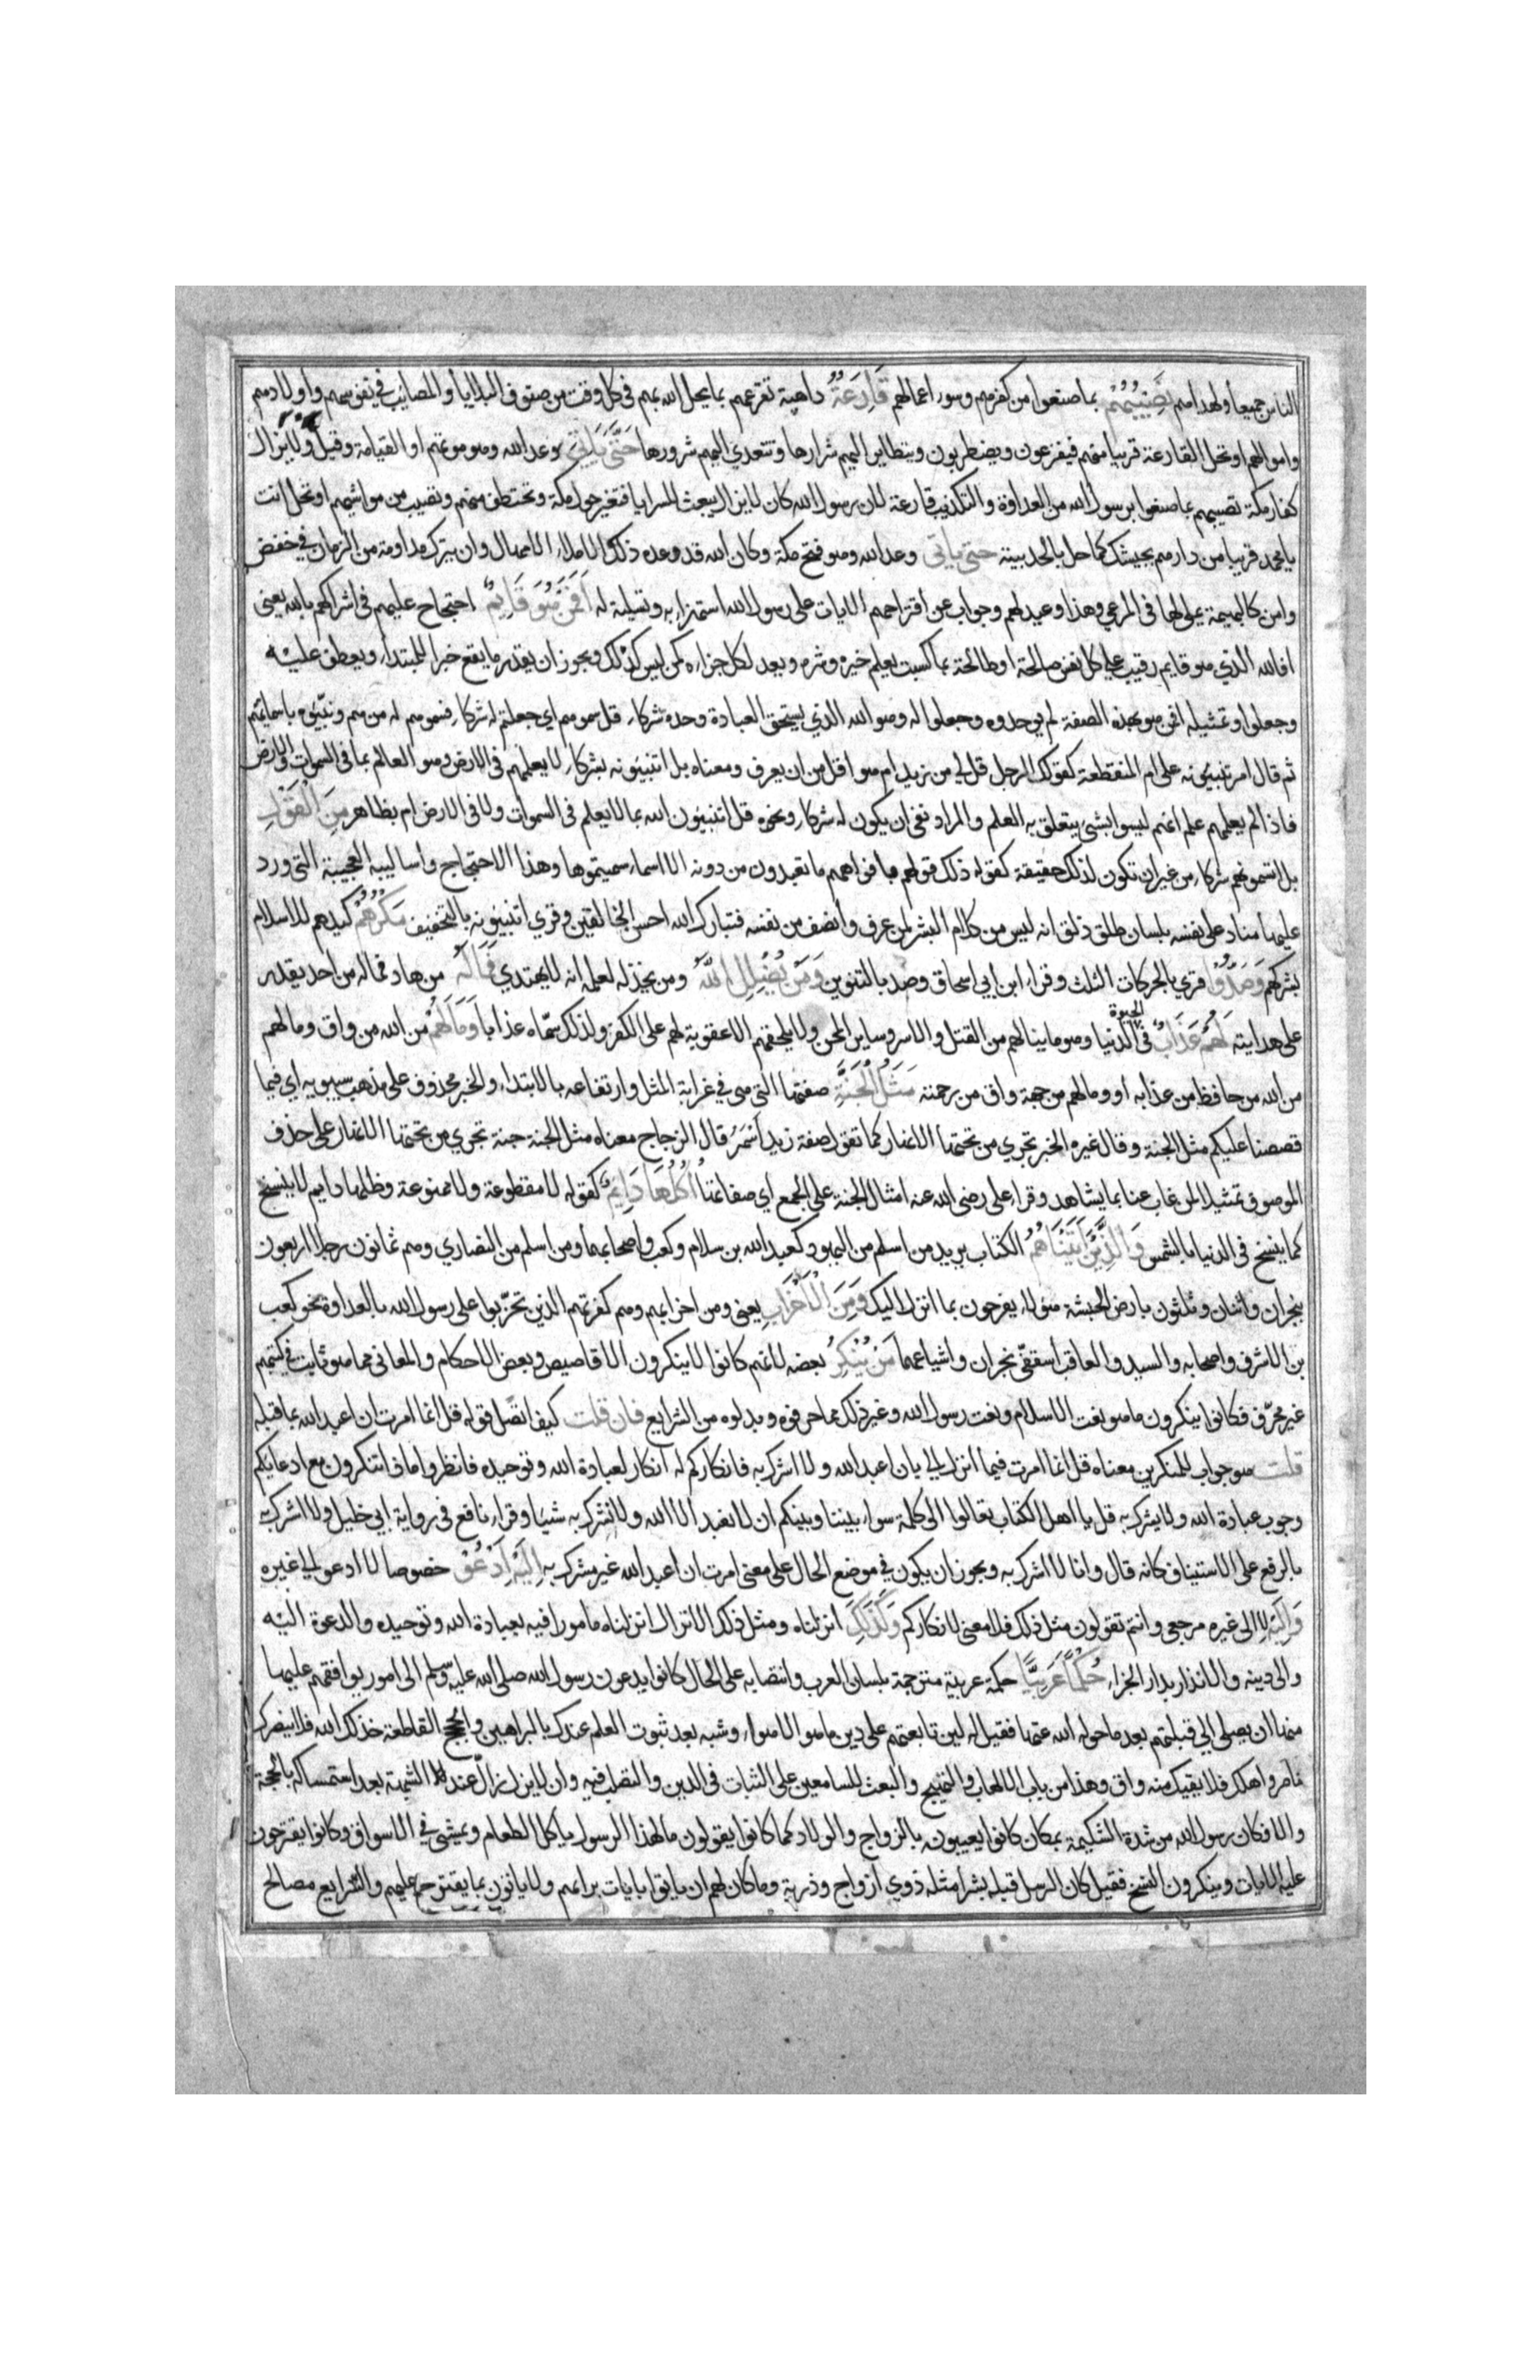 الناس جميعا ولهداهم تصيبهم بما صنعوا من كفرهم وسوء اعمالهم قارعة داهية تقرعهم بما يحل الله بهم في كل وقت من صنوف البلايا والمصائب في نفوسهم واولادهم
واموالهم او تحل القارعة قريبا منهم فيفزعون ويضطربون ويتطاير اليهم شرارها وتتعدي اليهم شرورها حتى ياتي وعد الله وهو موتهم او القيامة وقيل ولا يزال
كفار مكة تصيبهم بما صنعوا برسول الله من العداوة والتكذيب قارعة لان رسول الله كان لا يزال يبعث السرايا فتغير حول مكة وتختطف منهم وتصيب من مواشيهم او تحل انت
يا محمد قريبا من دارهم بجيشك كما حل بالحديبية حتى ياتي وعد الله وهو فتح مكة وكان الله قد وعده ذلك الاملاء الامهال وان يترك ملاومة من الزمان في خفض
وامن كالبهيمة يملى لها في المرعي وهذا وعيد لهم وجواب عن اقتراحهم الايات على رسول الله استهزاء به وتسلية له افمن هو قايم احتجاج عليهم في اشراكهم بالله يعني
افالله الذي هو قايم رقيب على كل نفس صالحة او طالحة بما كسبت يعلم خيره وشره ويعد لكل جزاءه كمن ليس كذلك ويجوز ان يقدر ما يقع خبرا للمبتداء ويعطف عليه
وجعلوا وتمثيله افمن هو بهذه الصفة لم يوحدوه وجعلوا له وهو الله الذي يستحق العبادة وحده شركاء قل سموهم اي جعلتم له شركاء فسموهم له من هم ونبئوه باسمائهم
ثم قال ام تنبئونه على ام المنقطعة كقولك للرجل قل لي من زيد ام هو اقل من ان يعرف ومعناه بل اتنبئونه بشركاء لا يعلمهم في الارض وهو العالم بما في السموات والارض
فاذا لم يعلمهم علم انهم ليسوا بشئ يتعلق به العلم والمراد نفي ان يكون له شركاء ونحوه قل اتنبئون الله بما لا يعلم في السموات ولا في الارض ام بظاهر من القول
بل اتسمونهم شركاء من غير ان تكون لذلك حقيقة كقوله ذلك قولهم بافواههم ما تعبدون من دونه الا اسماء سميتموها وهذا الاحتجاج واساليبه العجيبة التي ورد
عليها مناد على نفسه بلسان طلق ذلق انه ليس من كلام البشر لمن عرف وانصف من نفسه فتبارك الله احسن الخالقين وقري اتنبئونه بالتخفيف مكرهم كيدهم للاسلام
بشركهم وصدوا قري بالحركات الثلث وقراء ابن ابي اسحاق وصد بالتنوين ومن يضلل الله ومن يخذله لعلمه انه لا يهتدي فما له من هاد فما له من احد يقدر
على هدايته لهم عذاب في الحيوة الدنيا وهو ما ينالهم من القتل والاسر وساير المحن ولا يلحقهم الا عقوبة لهم على الكفر ولذلك سماه عذابا وما لهم من الله من واق وما لهم
من الله من حافظ من عذابه او وما لهم من جهة واق من رحمته مثل الجنة صفتها التي هي في غرابة المثل وارتفاعه بالابتداء والخبر محذوف على مذهب سيبويه اي فيما
قصصنا عليكم مثل الجنة وقال غيره الخبر تجري من تحتها الانهار كما تقول صفة زيد اسمر قال الزجاج معناه مثل الجنة جنة تجري من تحتها الانهار على حذف
الموصوف تمثيلا لمن غاب عنا بما يشاهد وقراء علي رضي الله عنه امثال الجنة على الجمع اي صفاتها اكلها دايم كقوله لا مقطوعة ولا ممنوعة وظلها دايم لا ينسخ
كما ينسخ في الدنيا بالشمس والذين اتيناهم الكتاب يريد من اسلم من اليهود كعبد الله بن سلام وكعب واصحابهما ومن اسلم من النصاري وهم ثمانون رجلا اربعون
بنجران واثنان وثلثون بارض الحبشة هؤلاء يفرحون بما انزل اليك ومن الاحزاب يعني ومن احزابهم وهم كفرتهم الذين تحزبوا على رسول الله بالعداوة نحو كعب
بن الاشرف واصحابه والسيد والعاقب اسقفي نجران واشياعهما من ينكر بعضه لانهم كانوا لا ينكرون الاقاصيص وبعض الاحكام والمعاني مما هو ثابت في كتبهم
غير محرف فكانوا ينكرون ما هو نعت الاسلام ونعت رسول الله وغير ذلك مما حرفوه وبدلوه من الشرايع فان قلت كيف اتصل قوله قل انما امرت ان اعبد الله بما قبله
قلت هو جواب للمنكرين معناه قل انما امرت فيما انزل الي بان اعبد الله ولا اشرك به فانكاركم له انكار لعبادة الله وتوحيده فانظروا ماذا تنكرون مع ادعائكم
وجوب عبادة الله ولا يشرك به قل يا اهل الكتاب تعالوا الى كلمة سواء بيننا وبينكم ان لا نعبد الا الله ولا نشرك به شيئا وقراء نافع في رواية ابي خليل ولا اشرك به
بالرفع على الاستيناف كانه قال وانا لا اشرك به ويجوز ان يكون في موضع الحال على معنى امرت ان اعبد الله غير مشرك به اليه ادعو خصوصا لا ادعو الى غيره
واليه لا الى غيره مرجعي وانتم تقولون مثل ذلك فلا معنى لانكاركم وكذلك انزلناه ومثل ذلك الانزال انزلناه مامورا فيه بعبادة الله وتوحيده والدعوة اليه
والى دينه والانذار بدار الجزاء حكما عربيا حكمة عربية مترجمة بلسان العرب وانتصابه على الحال كانوا يدعون رسول الله صلى الله عليه وسلم الى امور يوافقهم عليها
منها ان يصلي الي قبلتهم بعد ما حوله الله عنها فقيل له لين تابعتهم على دين ما هو الا اهواء وشبه بعد ثبوت العلم عندك بالبراهين والحجج القاطعة خذلك الله فلا ينصرك
ناصر واهلك فلا يقيك منه واق وهذا من باب الالهاب والتهييج والبعث للسامعين على الثبات في الدين والتصلب فيه وان لا يزل زال عند الشبهة بعد استمساكه بالحجة
والا فكان رسول الله من شدة الشكيمة بمكان كانوا يعيبونه بالزواج والولاد كما كانوا يقولون ما لهذا الرسول ياكل الطعام ويمشي في الاسواق وكانوا يقترحون
عليه الايات وينكرون النسخ فقيل كان الرسل قبله بشرا مثله ذوي ازواج وذرية وما كان لهم ان ياتوا بايات برائهم ولا ياتون بما يقترح عليهم والشرايع مصالح